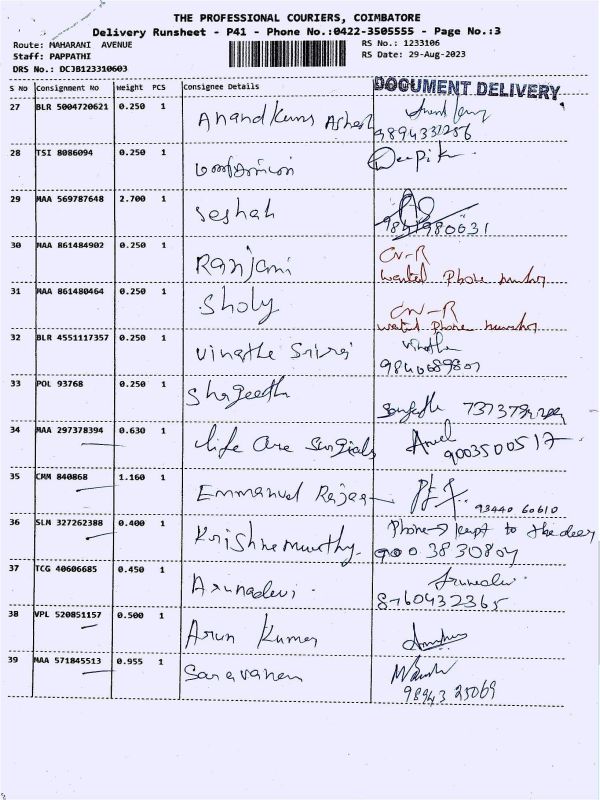 THE PROFESSIONAL COURIERS, COIMBATORE
Delivery Runsheet - P41 - Phone No.:0422-3505555 - Page No.:3
Route: MAHARANI AVENUE
RS No.: 1233106
Staff: PAPPATHI
RS Date: 29-Aug-2023
DRS No.: DCJB123310603
S No Consignment No Weight PCS Consignee Details
DOCUMENT DELIVERY
27 BLR 5004720621 0.250 1 Anandkumar
28 TSI 8086094 0.250 1 Deepik
29 MAA 569787648 2.700 1 Seshah
30 MAA 861484902 0.250 1 Ranjani CN-R
wanted Phone number
31 MAA 861480464 0.250 1 Sholy CN-R
wanted Phone number
32 BLR 4551117357 0.250 1 Vinatha
33 POL 93768 0.250 1
34 MAA 297378394 0.630 1 life Care Surgicals
9003500517
35 CMM 840868 1.160 1 Emmanuel
93440 60610
36 SLM 327262388 0.400 1 Krishnamurthy. Phone → kept to the door
9003830807
37 TCG 40606685 0.450 1 Arunadevi.
8760432365
38 VPL 520851157 0.500 1 Arun Kumar
39 MAA 571845513 0.955 1 Saravanan
98943 25069